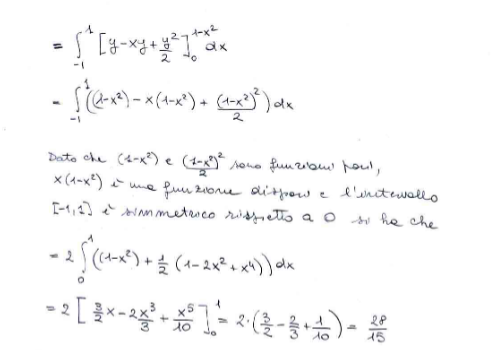 = ∫₋₁¹ [y - xy + y²/2]₀^(1-x²) dx
= ∫₋₁¹ ((1-x²) - x(1-x²) + (1-x²)²/2) dx
Dato che (1-x²) e (1-x²)²/2 sono funzioni pari,
x(1-x²) è una funzione dispari e l'intervallo
[-1,1] è simmetrico rispetto a 0 si ha che
= 2 ∫₀¹ ((1-x²) + 1/2 (1-2x²+x⁴)) dx
= 2 [3/2 x - 2x³/3 + x⁵/10]₀¹ = 2·(3/2 - 2/3 + 1/10) = 28/15